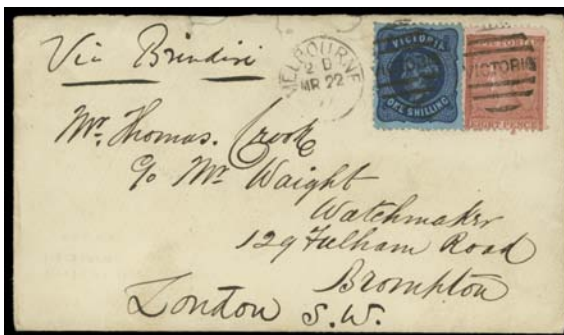 Via Brindisi
MELBOURNE
2 D
MR 22
VICTORIA
ONE SHILLING
VICTORIA
VICTORIA
Mr. Thomas. Crook
c/o Mr Waight
Watchmaker
129 Fulham Road
Brompton
London S.W.